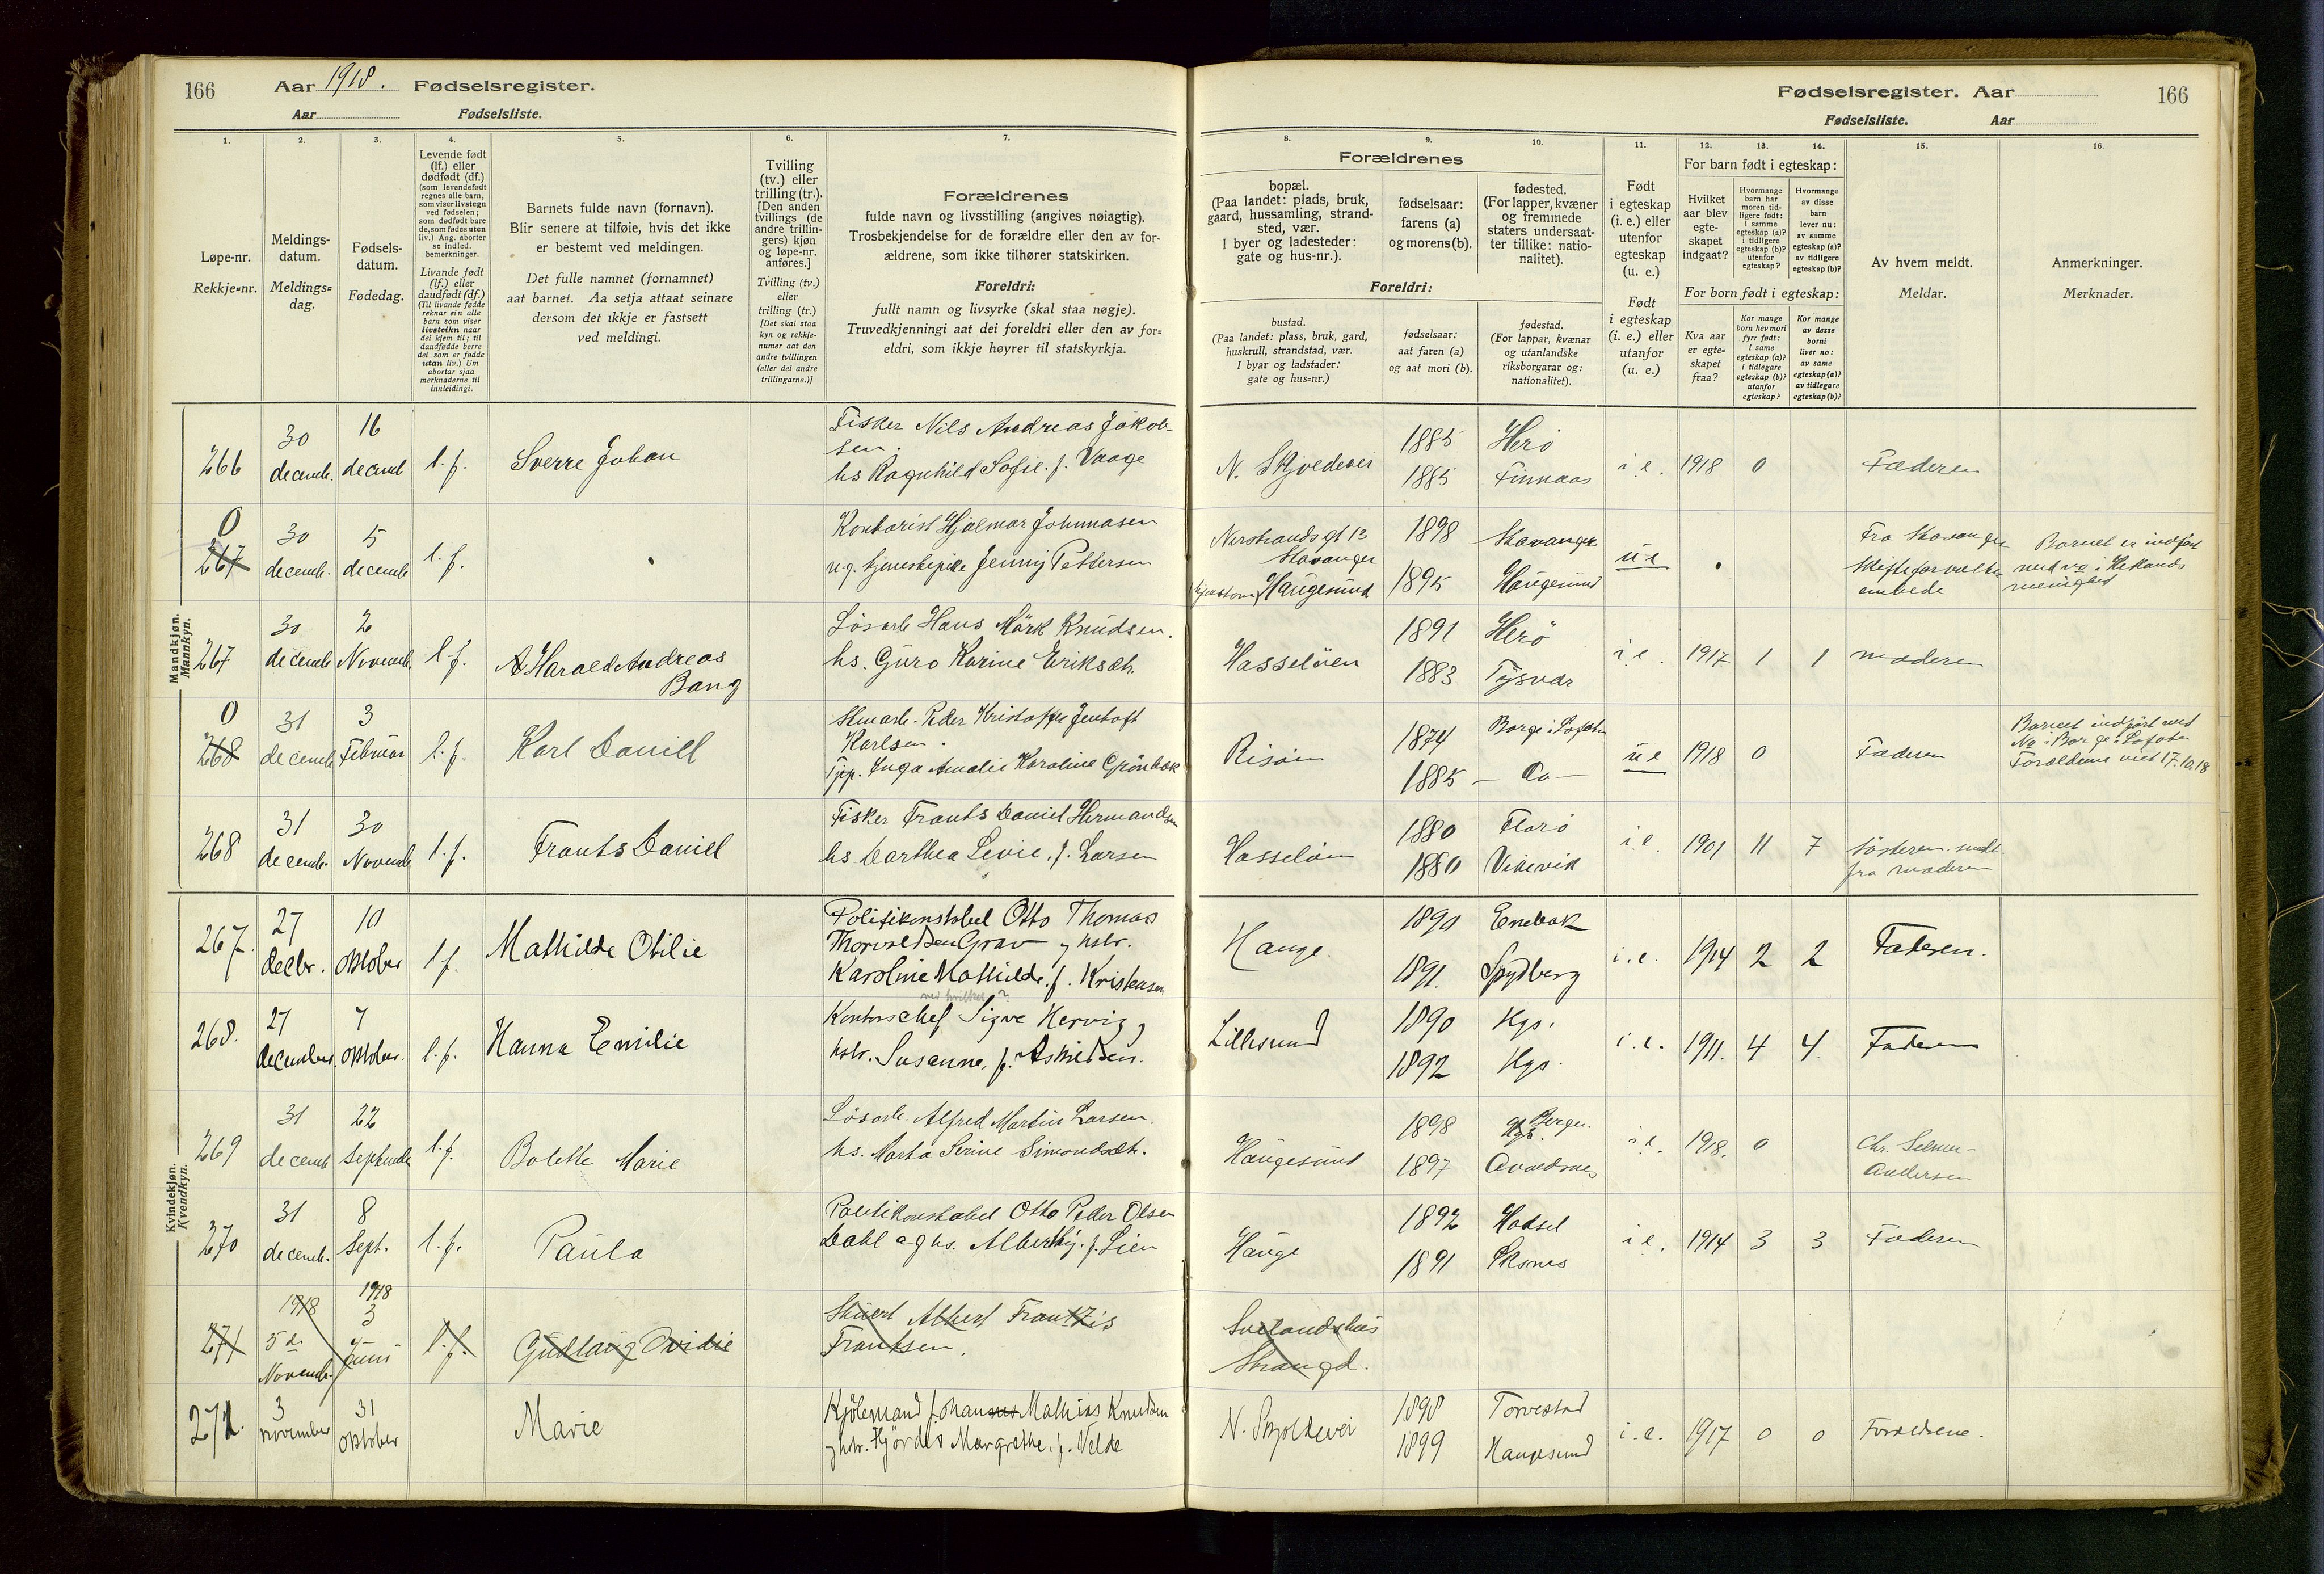 166
Aar 1918. Fødselsregister.
Aar Fødselsliste.
Fødselsregister. Aar
Fødselsliste. Aar
166
1. 2. 3. 4. 5. 6. 7. 8. 9. 10. 11. 12. 13. 14. 15. 16.
Løpe-nr.
Rekkje=nr.
Meldings-
datum.
Meldings=
dag.
Fødsels-
datum.
Fødedag.
Levende født
(lf.) eller
dødfødt (df.)
(som levendefødt
regnes alle barn,
som viser livstegn
ved fødselen;
som dødfødt bare
de, som fødes uten
liv.) Ang. aborter
se indled.
bemerkninger.
Livande født
(lf.) eller
daudfødt (df.)
(Til livande fødde
reknar ein alle
barn som viser
livsteikn naar
dei kjem til; til
daudfødde berre
dei som er fødde
utan liv.) Um
abortar sjaa
merknaderne til
innleidingi.
Barnets fulde navn (fornavn).
Blir senere at tilføie, hvis det ikke
er bestemt ved meldingen.
Det fulle namnet (fornamnet)
aat barnet. Aa setja attaat seinare
dersom det ikkje er fastsett
ved meldingi.
Tvilling
(tv.) eller
trilling (tr.).
[Den anden
tvillings (de
andre trillin-
gers) kjøn
og løpe-nr.
anføres.]
Tvilling (tv.)
eller
trilling (tr.)
[Det skal staa
kyn og rekkje-
numer aat den
andre tvillingen
(eller dei andre
trillingarne.)]
Forældrenes
fulde navn og livsstilling (angives nøiagtig).
Trosbekjendelse for de forældre eller den av for-
ældrene, som ikke tilhører statskirken.
Foreldri:
fullt namn og livsyrke (skal staa nøgje).
Truvedkjenningi aat dei foreldri eller den av for=
eldri, som ikkje høyrer til statskyrkja.
Forældrenes
bopæl.
(Paa landet: plads, bruk,
gaard, hussamling, strand-
sted, vær.
I byer og ladesteder:
gate og hus-nr.).
fødselsaar:
farens (a)
og morens (b).
fødested.
(For lapper, kvæner
og fremmede
staters undersaat-
ter tillike: natio-
nalitet).
Foreldri:
bustad.
(Paa landet: plass, bruk, gard,
huskrull, strandstad, vær.
I byar og ladstader:
gate og hus-nr.)
fødselsaar:
aat faren (a)
og aat mori (b).
fødestad.
(For lappar, kvænar
og utanlandske
riksborgarar og:
nationalitet).
Født
i egteskap
(i. e.) eller
utenfor
egteskap
(u. e.)
Født
i egteskap
(i. e.) eller
utanfor
(u. e.)
For barn født i egteskap:
Hvilket
aar blev
egte-
skapet
indgaat?
Hvormange
barn har
moren tid-
ligere født:
i samme
egteskap (a)?
i tidligere
egteskap (b)?
utenfor
egteskap?
Hvormange
av disse
barn
lever nu:
av samme
egteskap (a)?
av tidligere
egteskap (b)?
For born født i egteskap:
Kva aar
er egte=
skapet
fraa?
Kor mange
born hev mori
fyrr født:
i same
egteskap (a)?
i tidlegare
egteskap (b)?
utanfor
egteskap?
Kor mange
av desse
borni
liver no:
av same
egteskap (a)?
av tidlegare
egteskap (b)?
Av hvem meldt.
Meldar.
Anmerkninger.
Merknader.
Mandkjøn.
Mannkyn.
266 30 decemb. 16 decemb l. f. Sverre Johan
Fisker Nils Andreas Jakob-
sen.
hs Ragnhild Sofie. f. Vaage
N. Skjoldevei 1885 Herö
1885 Finnaas
i e. 1918 0 Faderen
0
267 30 decemb. 5 decemb l. f.
Kontorist Hjalmar Johnnasen
ug. tjenestepike Jenny Pettersen
Nerstrands gt 13
Stavanger
Haugesund
1898 Stavanger
1895 Haugesund
u e
Fra Stavanger
Skifteforvalter
embede
Barnet er indført
ved no i Hetlands
menighed
267 30 decemb 2 Novemb. l. f. Harald Andreas
Bang
Løsarb Hans Mörk Knudsen.
hs. Guro Karine Eriksdt.
Hasseløen 1891 Herö
1883 Tysvær
i e. 1917 1 1 moderen
0
268 31 decemb 3 Februar l. f. Karl Daniel
Stenarb. Peder Kristoffer Jentoft
Karlsen.
Tpp. Inga Amalie Karoline Grönbæk
Risøen 1874 Borge i Lofoten
1885 — Do —
u e 1918 0 Faderen
Barnet indført ved
No i Borge i Lofoten
Forældrene viet 17.10.18
268 31 decemb. 30 Novemb l. f. Frants Daniel
Fisker Frants Daniel Hermandsen
hs. Darthea Levie. f. Larsen
Hasseløen 1880 Florö
1880 Vikevik
i. e. 1901 11 7 søsteren. sendt
fra moderen
Kvindekjøn.
Kvendkyn.
267. 27 decbr. 10 oktober l f. Mathilde Otilie
Politikonstabel Otto Thomas
Thorvaldsen Grav og hstr.
Karoline Mathilde. f. Kristensen
Hauge. 1890 Enebak
1891. Spydberg
i. e. 1914 2 2 Faderen.
268. 27 december. 7 oktober. l. f. Hanna Emilie
Kontorschef Sigve Hervig og
hstr. Susanne, f. Askildsen.
Lillesund 1890 Hgs.
1892 Hgs.
i. e. 1911. 4 4. Faderen
269 31 decemb 22 Septemb l. f. Bolette Marie
Løsarb. Alfred Martin Larsen.
hs. Marta Serine Simondsdt.
Haugesund 1898 Bergen.
1897 Avaldsnes
i e. 1918. 0 Chr. Selmer-
Andersen
270 31 decemb. 8 Sept. l. f. Paula
Politikonstabel Otto Peder Olsen
Dahl og hs. Alberthy. f. Lien
Hauge 1892 Hadsel
1891 Skonas
i e. 1914 3 3 Faderen
271 1918 5 d. Novemb. 1918 3 Juni l. f. Gudlaug Ovidie
Stuert Albert Frantzis
Frantsen.
Sørlandshus
Strangd.
272. 3 november 31 oktober Marie
Kjölemand Johannes Mathias Knudsen
og hstr. Hjördis Margrethe. f. Velde
N. Skjoldevei 1898 Torvestad
1899 Haugesund
i. e. 1917 0 0 Forældrene.